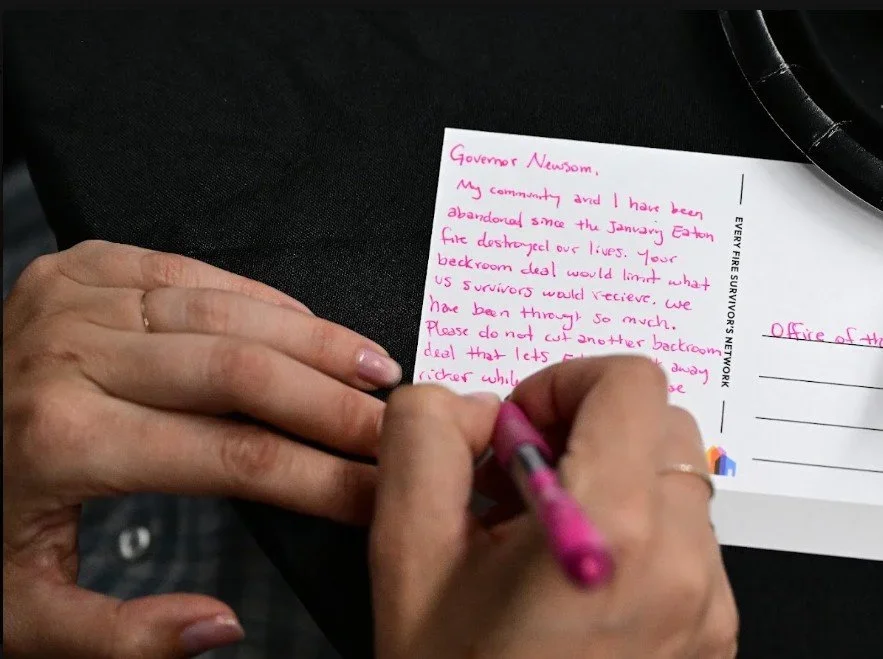 Governor Newsom,
My community and I have been
abandoned since the January Eaton
fire destroyed our lives. Your
backroom deal would limit what
us survivors would recieve. We
have been throught so much.
Please do not cut another backroom
deal that lets away
richer while
EVERY FIRE SURVIVOR'S NETWORK
Office of th